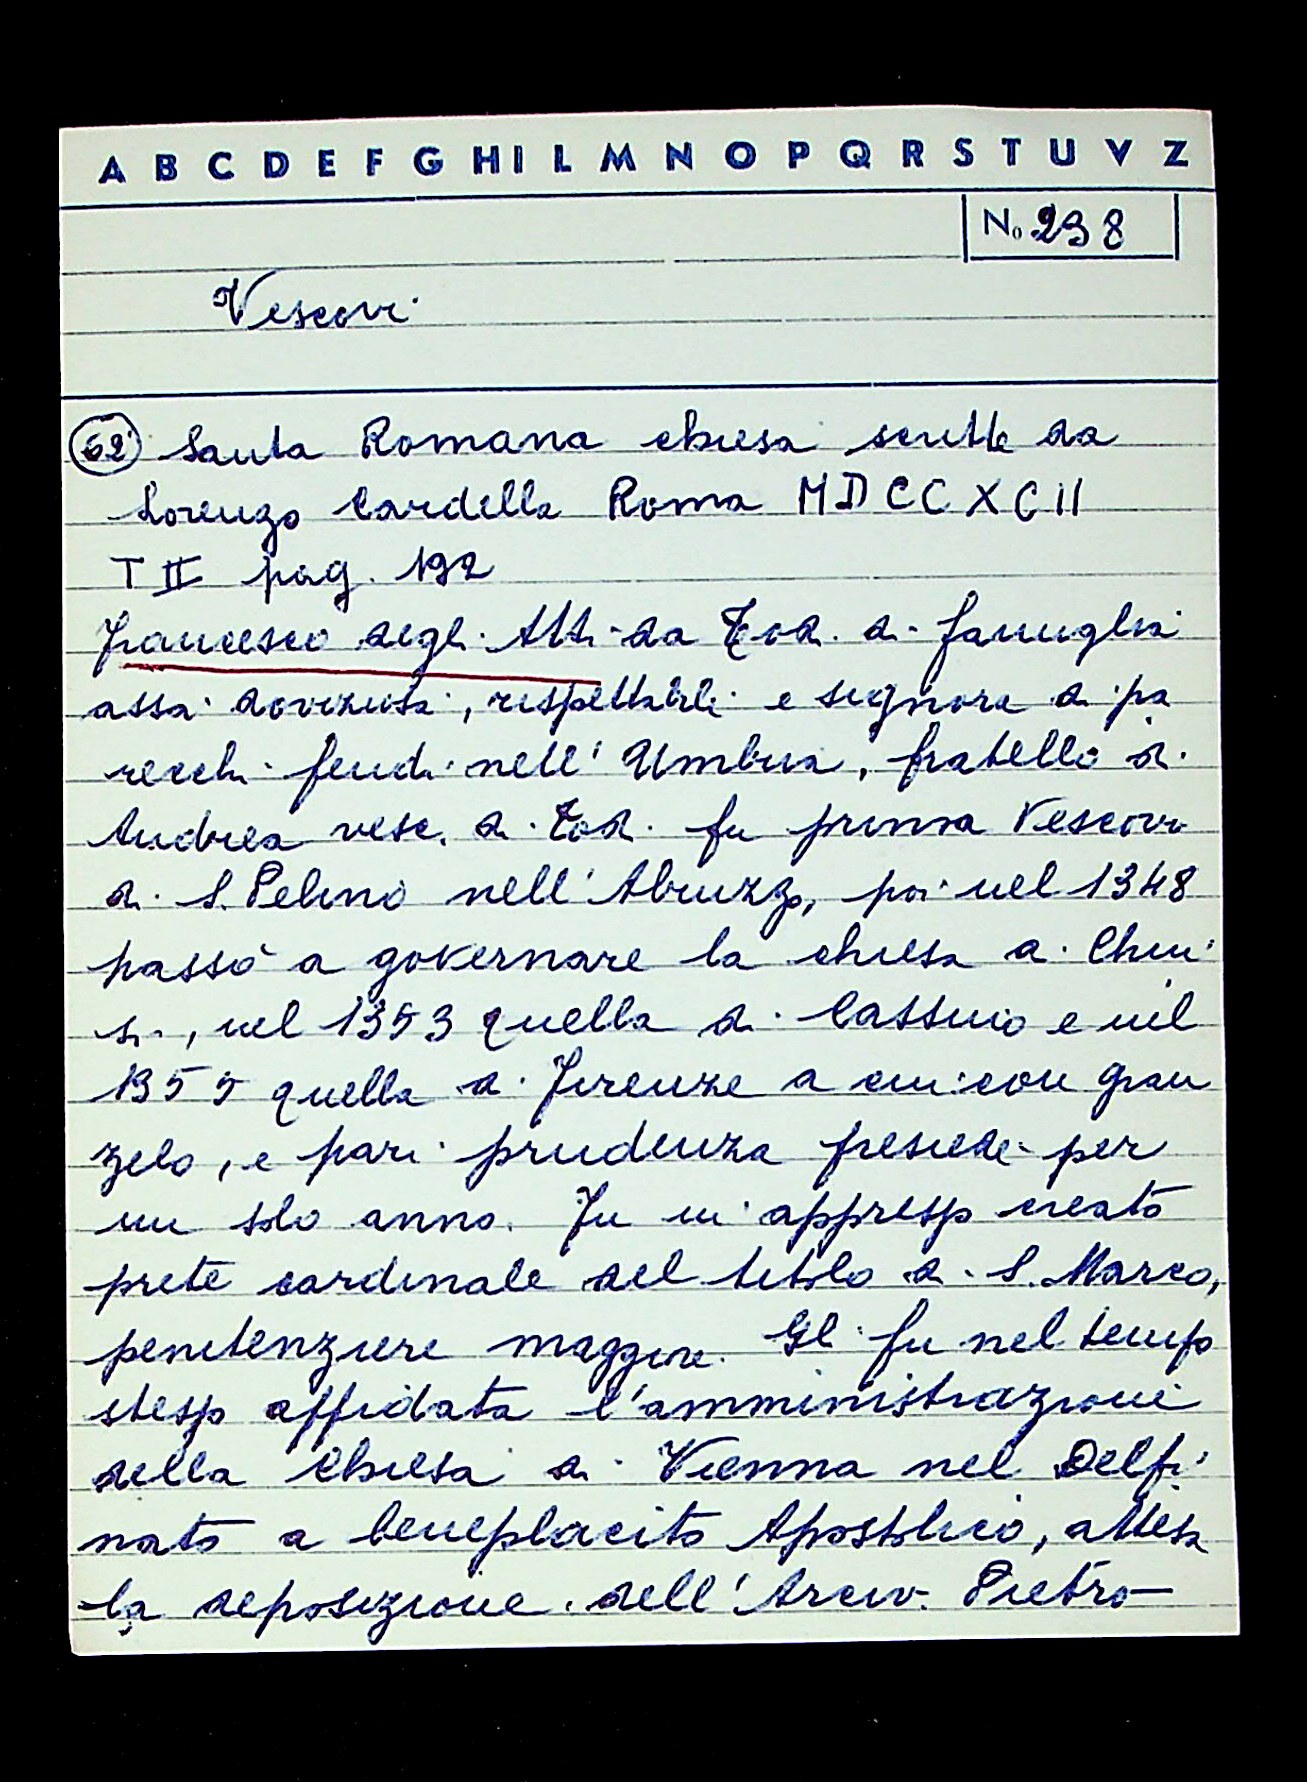 A B C D E F G H I L M N O P Q R S T U V Z
No 298
Vescovi
62 Santa Romana chiesa scritte da
Lorenzo Cardella Roma MDCCXCII
T II pag. 192
Francesco degli Atti da Todi di famiglia
assai doviziosa, rispettabile e signora di pa
recchi feudi nell'Umbria, fratello di
Andrea vesc. di Todi fu prima Vescovo
di S. Pelino nell'Abruzzo, poi nel 1348
passò a governare la chiesa di Chiu
si, nel 1353 quella di Cassino e nel
1355 quella di Firenze a cui con gran
zelo, e pari prudenza presiede per
un solo anno. Fu in appresso creato
prete cardinale del titolo di S. Marco,
penitenziere maggiore. Gli fu nel tempo
stesso affidata l'amministrazione
della Chiesa di Vienna nel Delfi
nato a beneplacito Apostolico, attesa
la deposizione dell'Arciv. Pietro